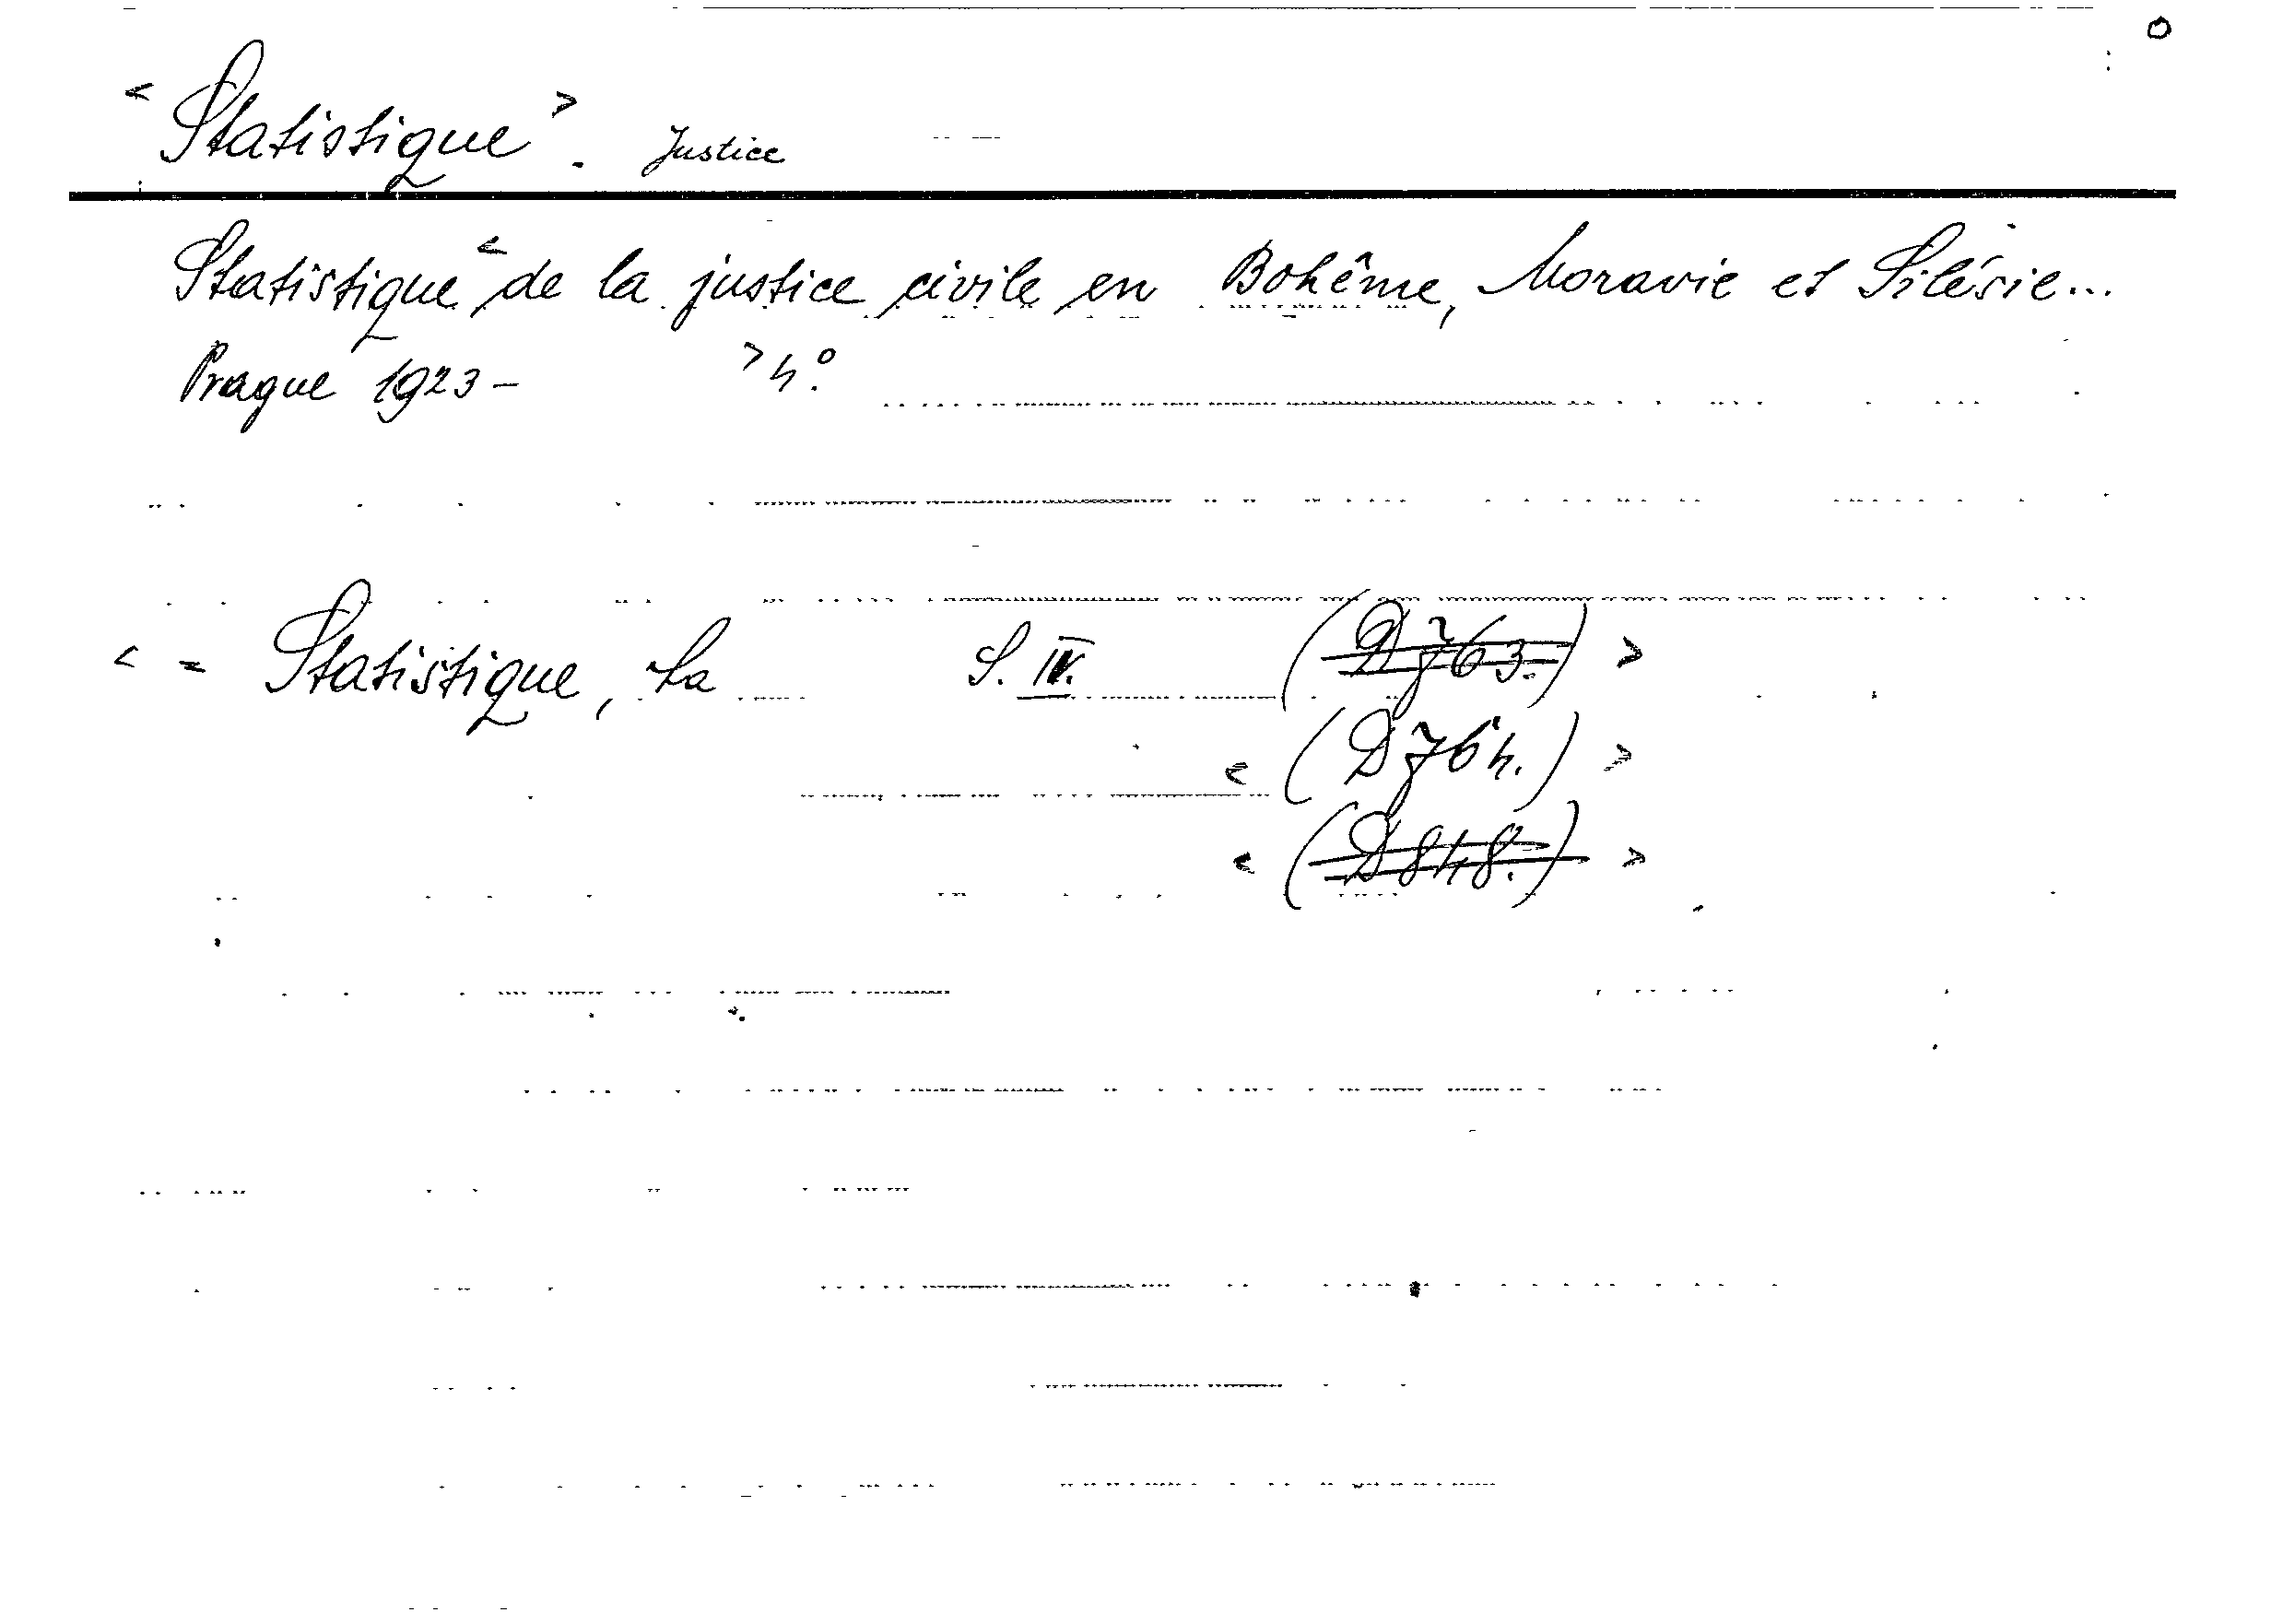 < Statistique >. Justice
Statistique < de la justice civile en Bohême, Moravie et Silésie...
Prague 1923- > 4°.
< = Statistique, La S. IV. (D 763.) >
< (D 764.) >
< (D 848.) >